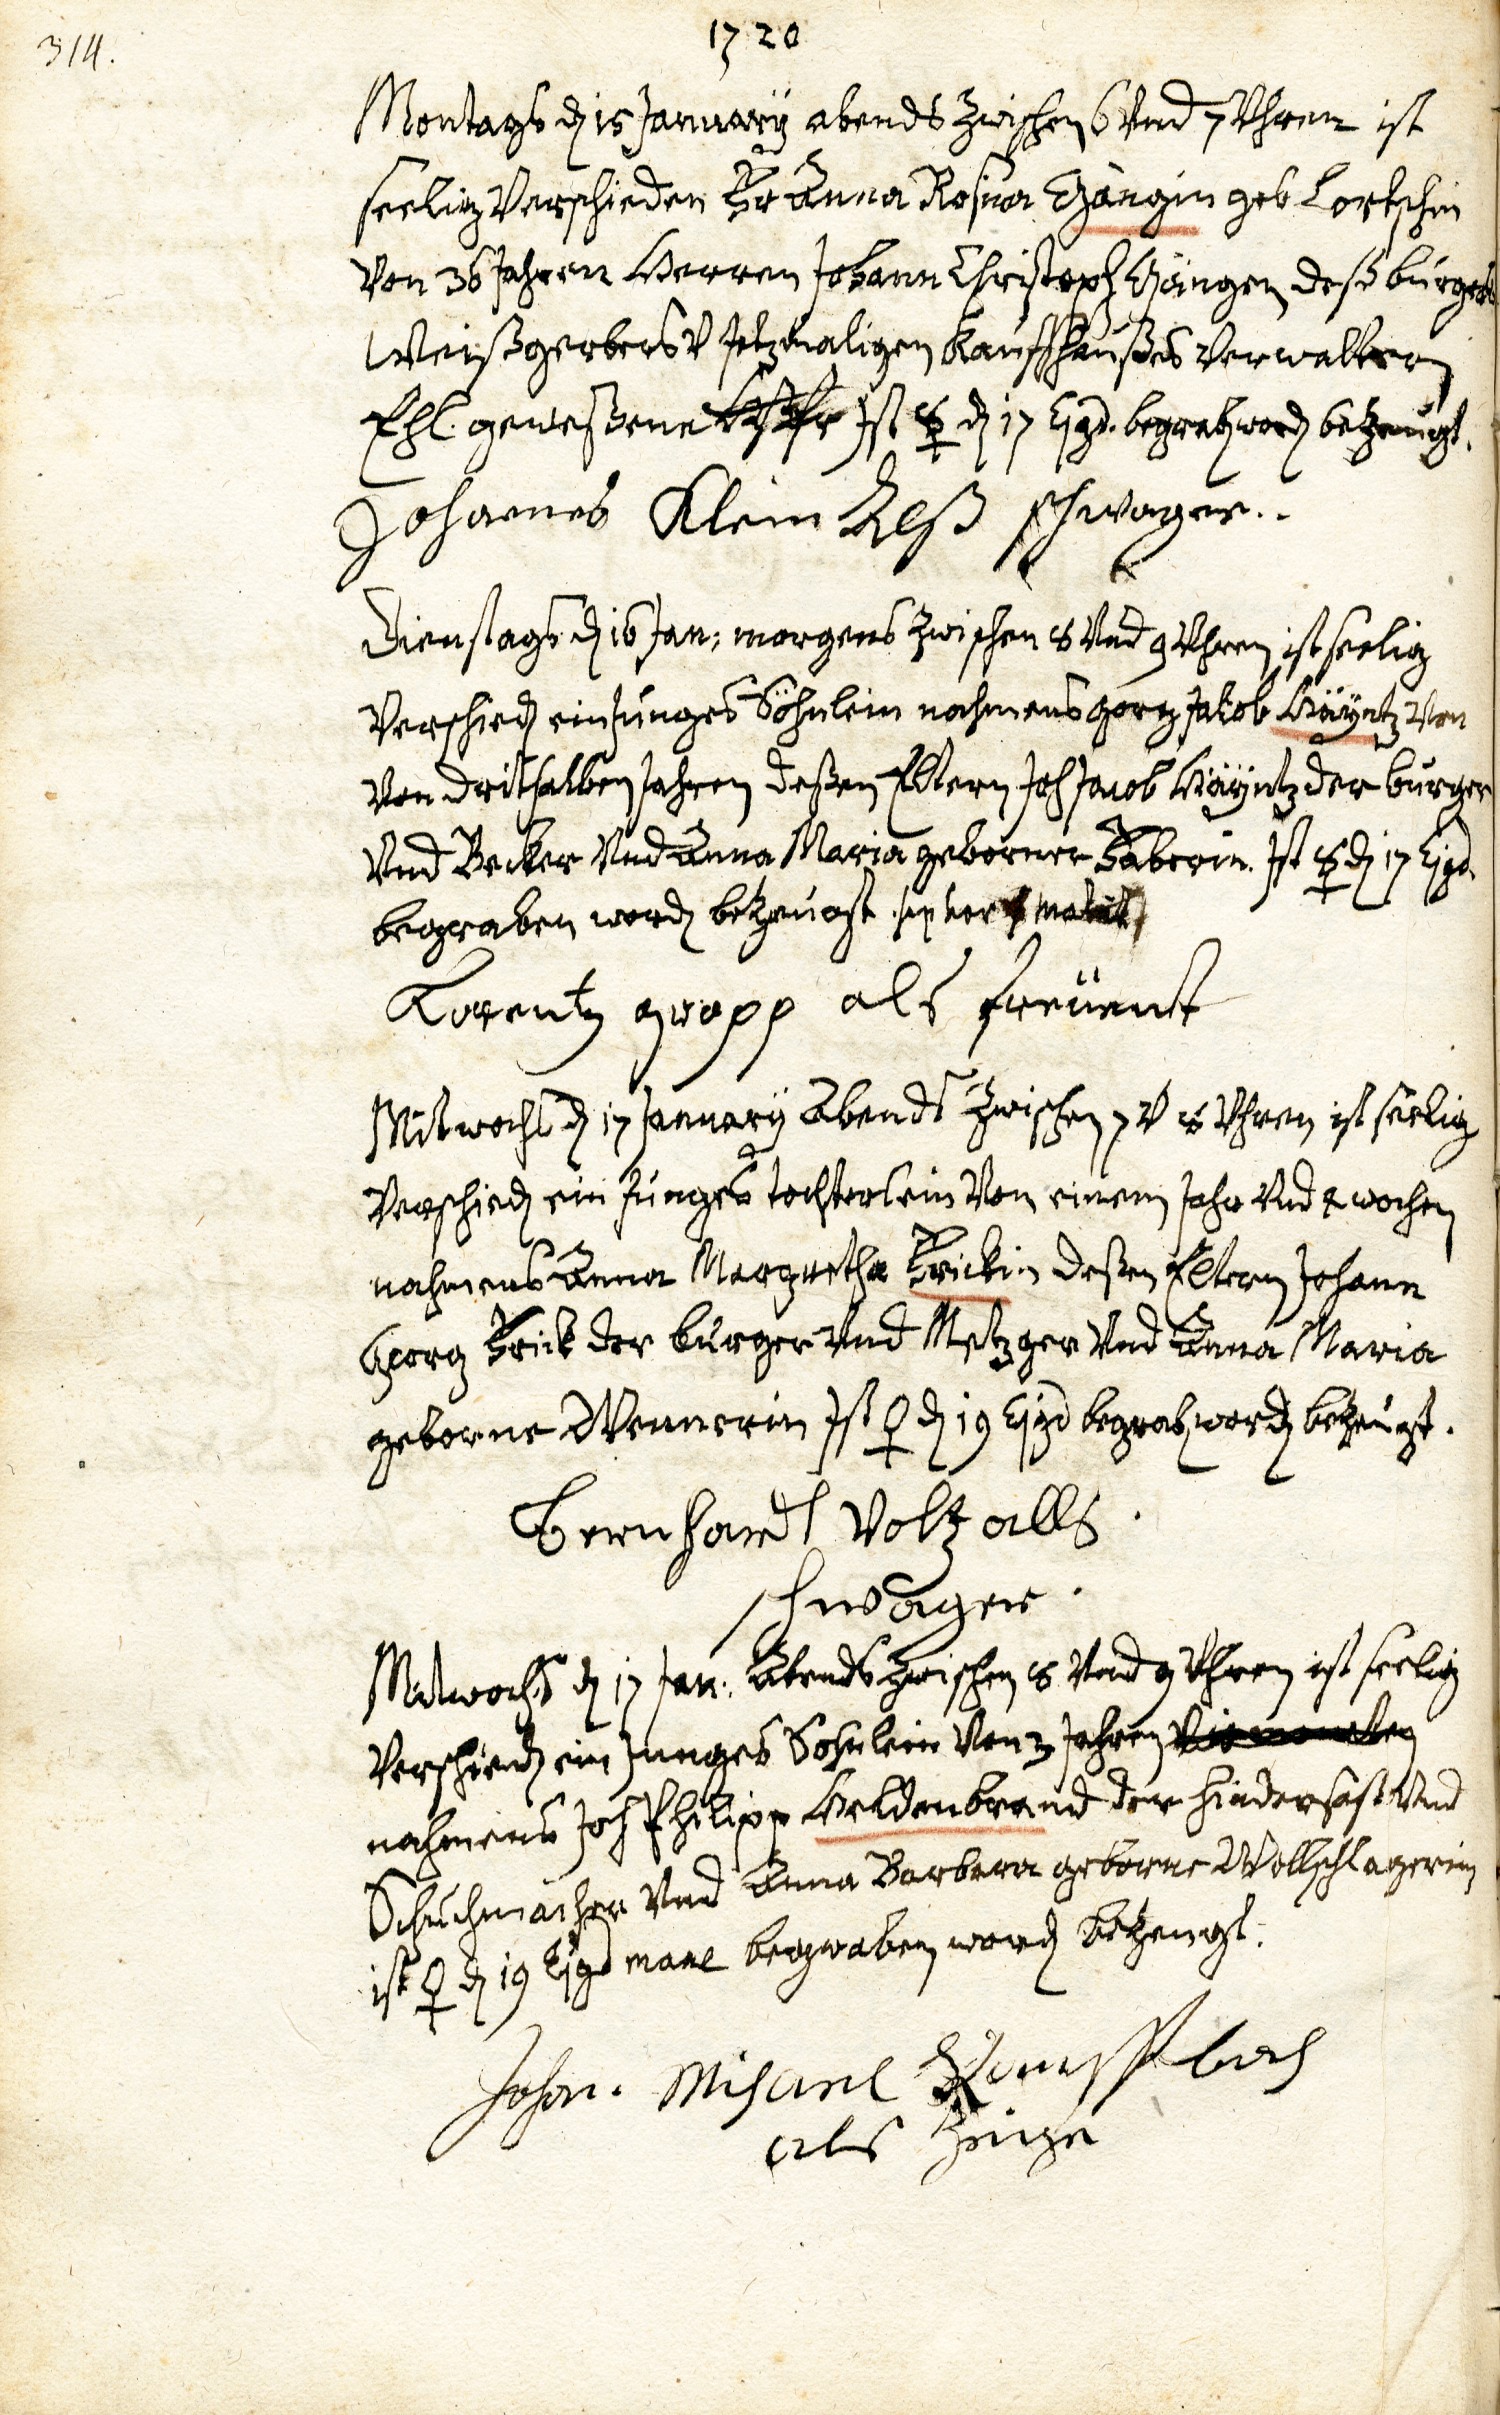 314.
1720
Montags d 15 January abends zwischen 6 Vnd 7 Vhren ist
seelig Verschieden Fr Anna Rosina Gängin geb Lortschin
Von 36 Jahren Herren Johann Christoph Gängen deß burgers
Weißgerbers V Jetzmaligen Kauffhaußes Verwalters
Ehl. geweßene Ist ☿ d 17 Ejgd. begrab word betzeugt.
Johanes Klein Schwager.
Dienstags d 16 Jan: morgens zwischen 8 Vnd 9 Vhren ist seelig
Verschied ein Junges Söhnlein nahmens georg Jakob Häyntz Von
Von dritthalben Jahren deßen Eltern Joh Jacob Häyntz der burger
Vnd Becker Vnd Anna Maria geborner Faberin. Ist ☿ d 17 Ejgd.
begraben word betzeugt
Lorentz grapp als freüent
Mitwochs d 17 January Abends zwischen 7 V 8 Vhren ist seelig
Verschied ein Junges Tochterlein Von einem Jahr Vnd 4 wochen
nahmens Anna Margretha Frickin deßen Eltern Johann
Georg Frick der burger Vnd Metzger Vnd Anna Maria
geborne Wennerin Ist ♀ d 19 Ejgd begrab word betzeugt.
Bernhardt Voltz alls
schwager.
Mitwochs d 17 Jan: Abends zwischen 8 Vnd 9 Vhren ist seelig
Verschied ein Junges Sohnlein Von 3 Jahren
nahmens Joh Philipp Heldenbrand der hindersaß Vnd
Schuchmacher Vnd Anna Barbara geborne Wollschlagerin
ist ♀ d 19 Ejgd mane begraben word betzeugt.
Johan. Michael
als Zeige